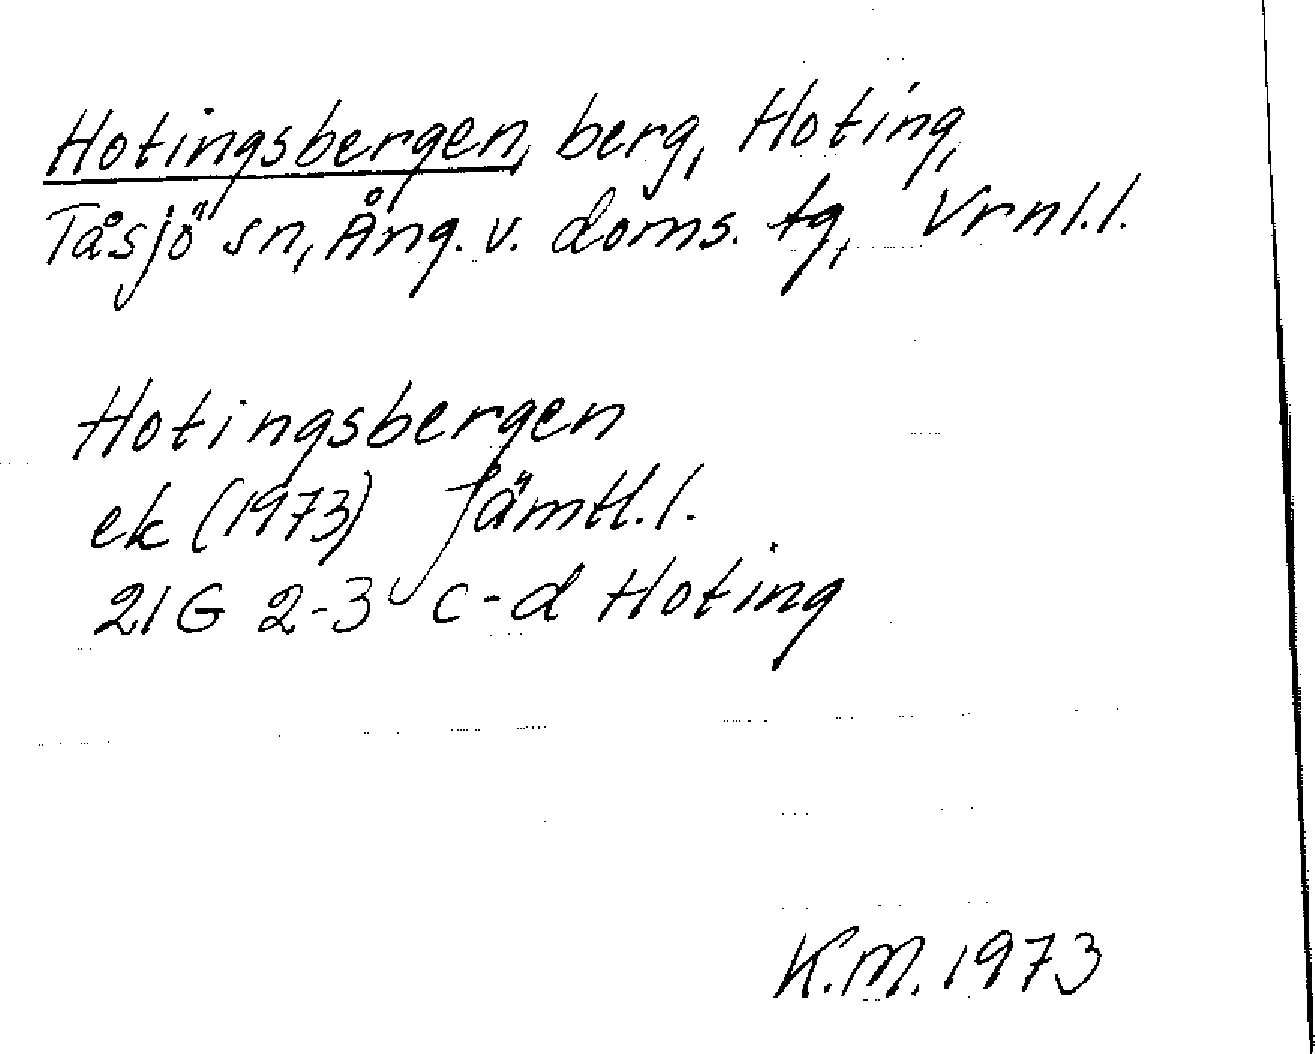 Hotingsbergen, berg, Hoting,
Tåsjö sn, Ång. v. doms. tg, Vrnl.l.
Hotingsbergen
ek (1973) Jämtl.l.
21G 2-3 c-d Hoting
K.M. 1973